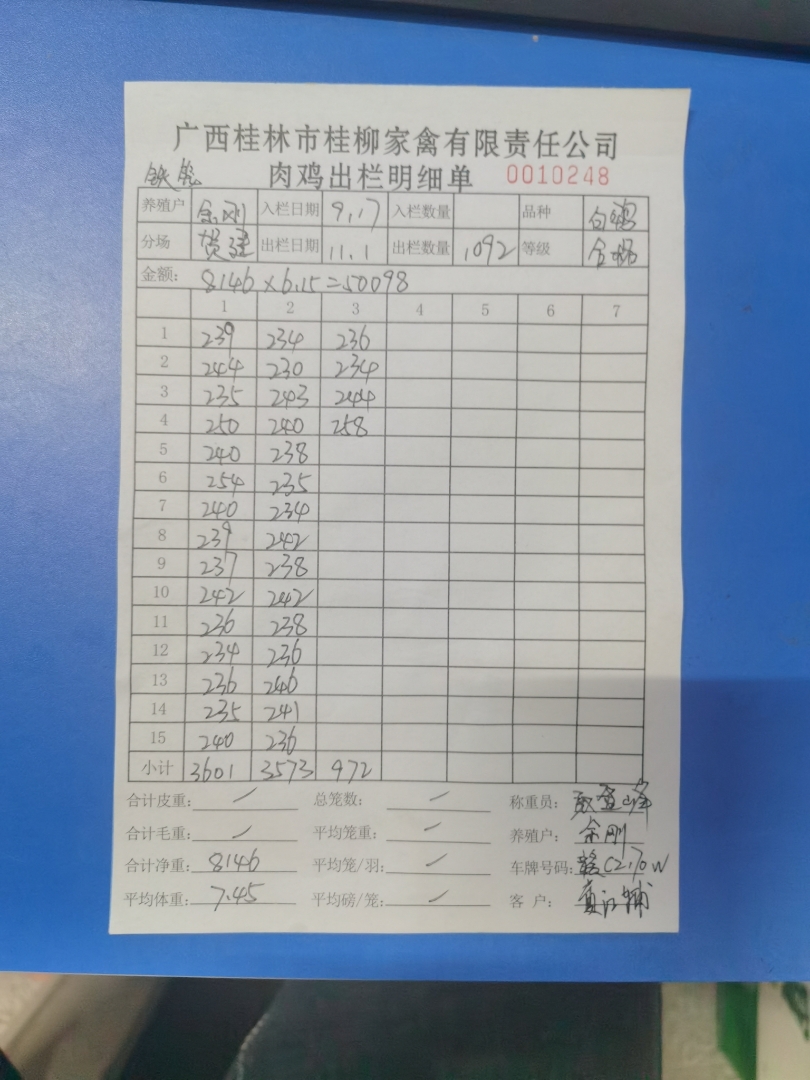 广西桂林市桂柳家禽有限责任公司
肉鸡出栏明细单 0010248
养殖户 余刚 入栏日期 9.17 入栏数量 品种
分场 出栏日期 11.1 出栏数量 1092 等级 合格
金额: 8146×6.15=50098
1 2 3 4 5 6 7
1 239 234 236
2 244 230 234
3 235 243 244
4 250 240 258
5 240 238
6 254 235
7 240 234
8 239 242
9 237 238
10 242 242
11 236 238
12 234 236
13 236 246
14 235 241
15 240 236
小计 3601 3573 972
合计皮重: / 总笼数: / 称重员:
合计毛重: / 平均笼重: / 养殖户: 余刚
合计净重: 8146 平均笼/羽: / 车牌号码: 赣C2170W
平均体重: 7.45 平均磅/笼: / 客 户: